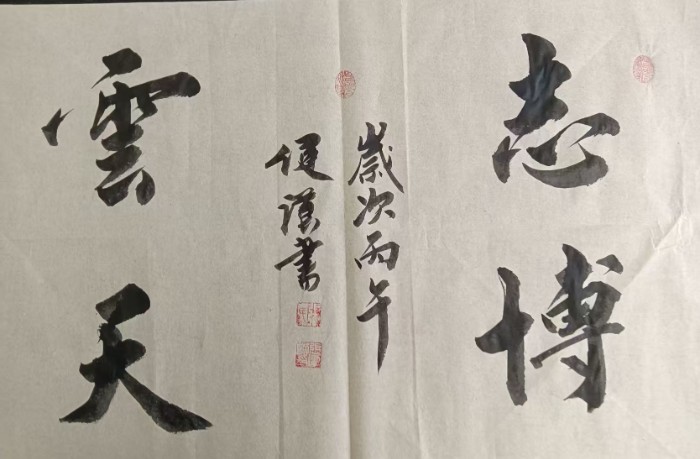 志博
歲次丙午
健漢書
雲天